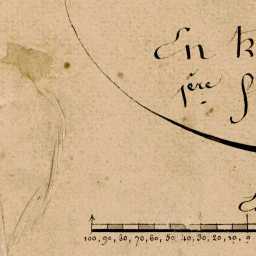 En
1ère
100, 90, 80, 70, 60, 50, 40, 30, 20, 10, 0